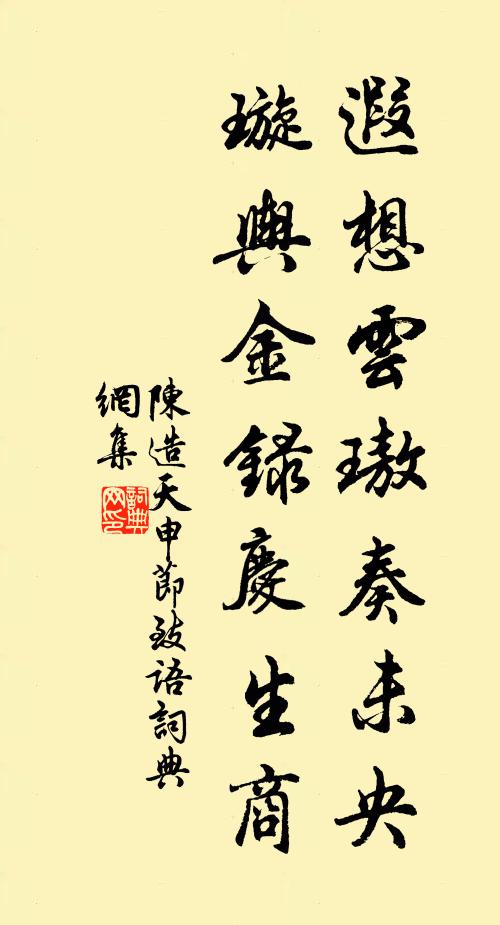 遐想雲璈奏未央
璇輿金錄慶生商
陳造天申節致語詞典
網集
詞典
网印